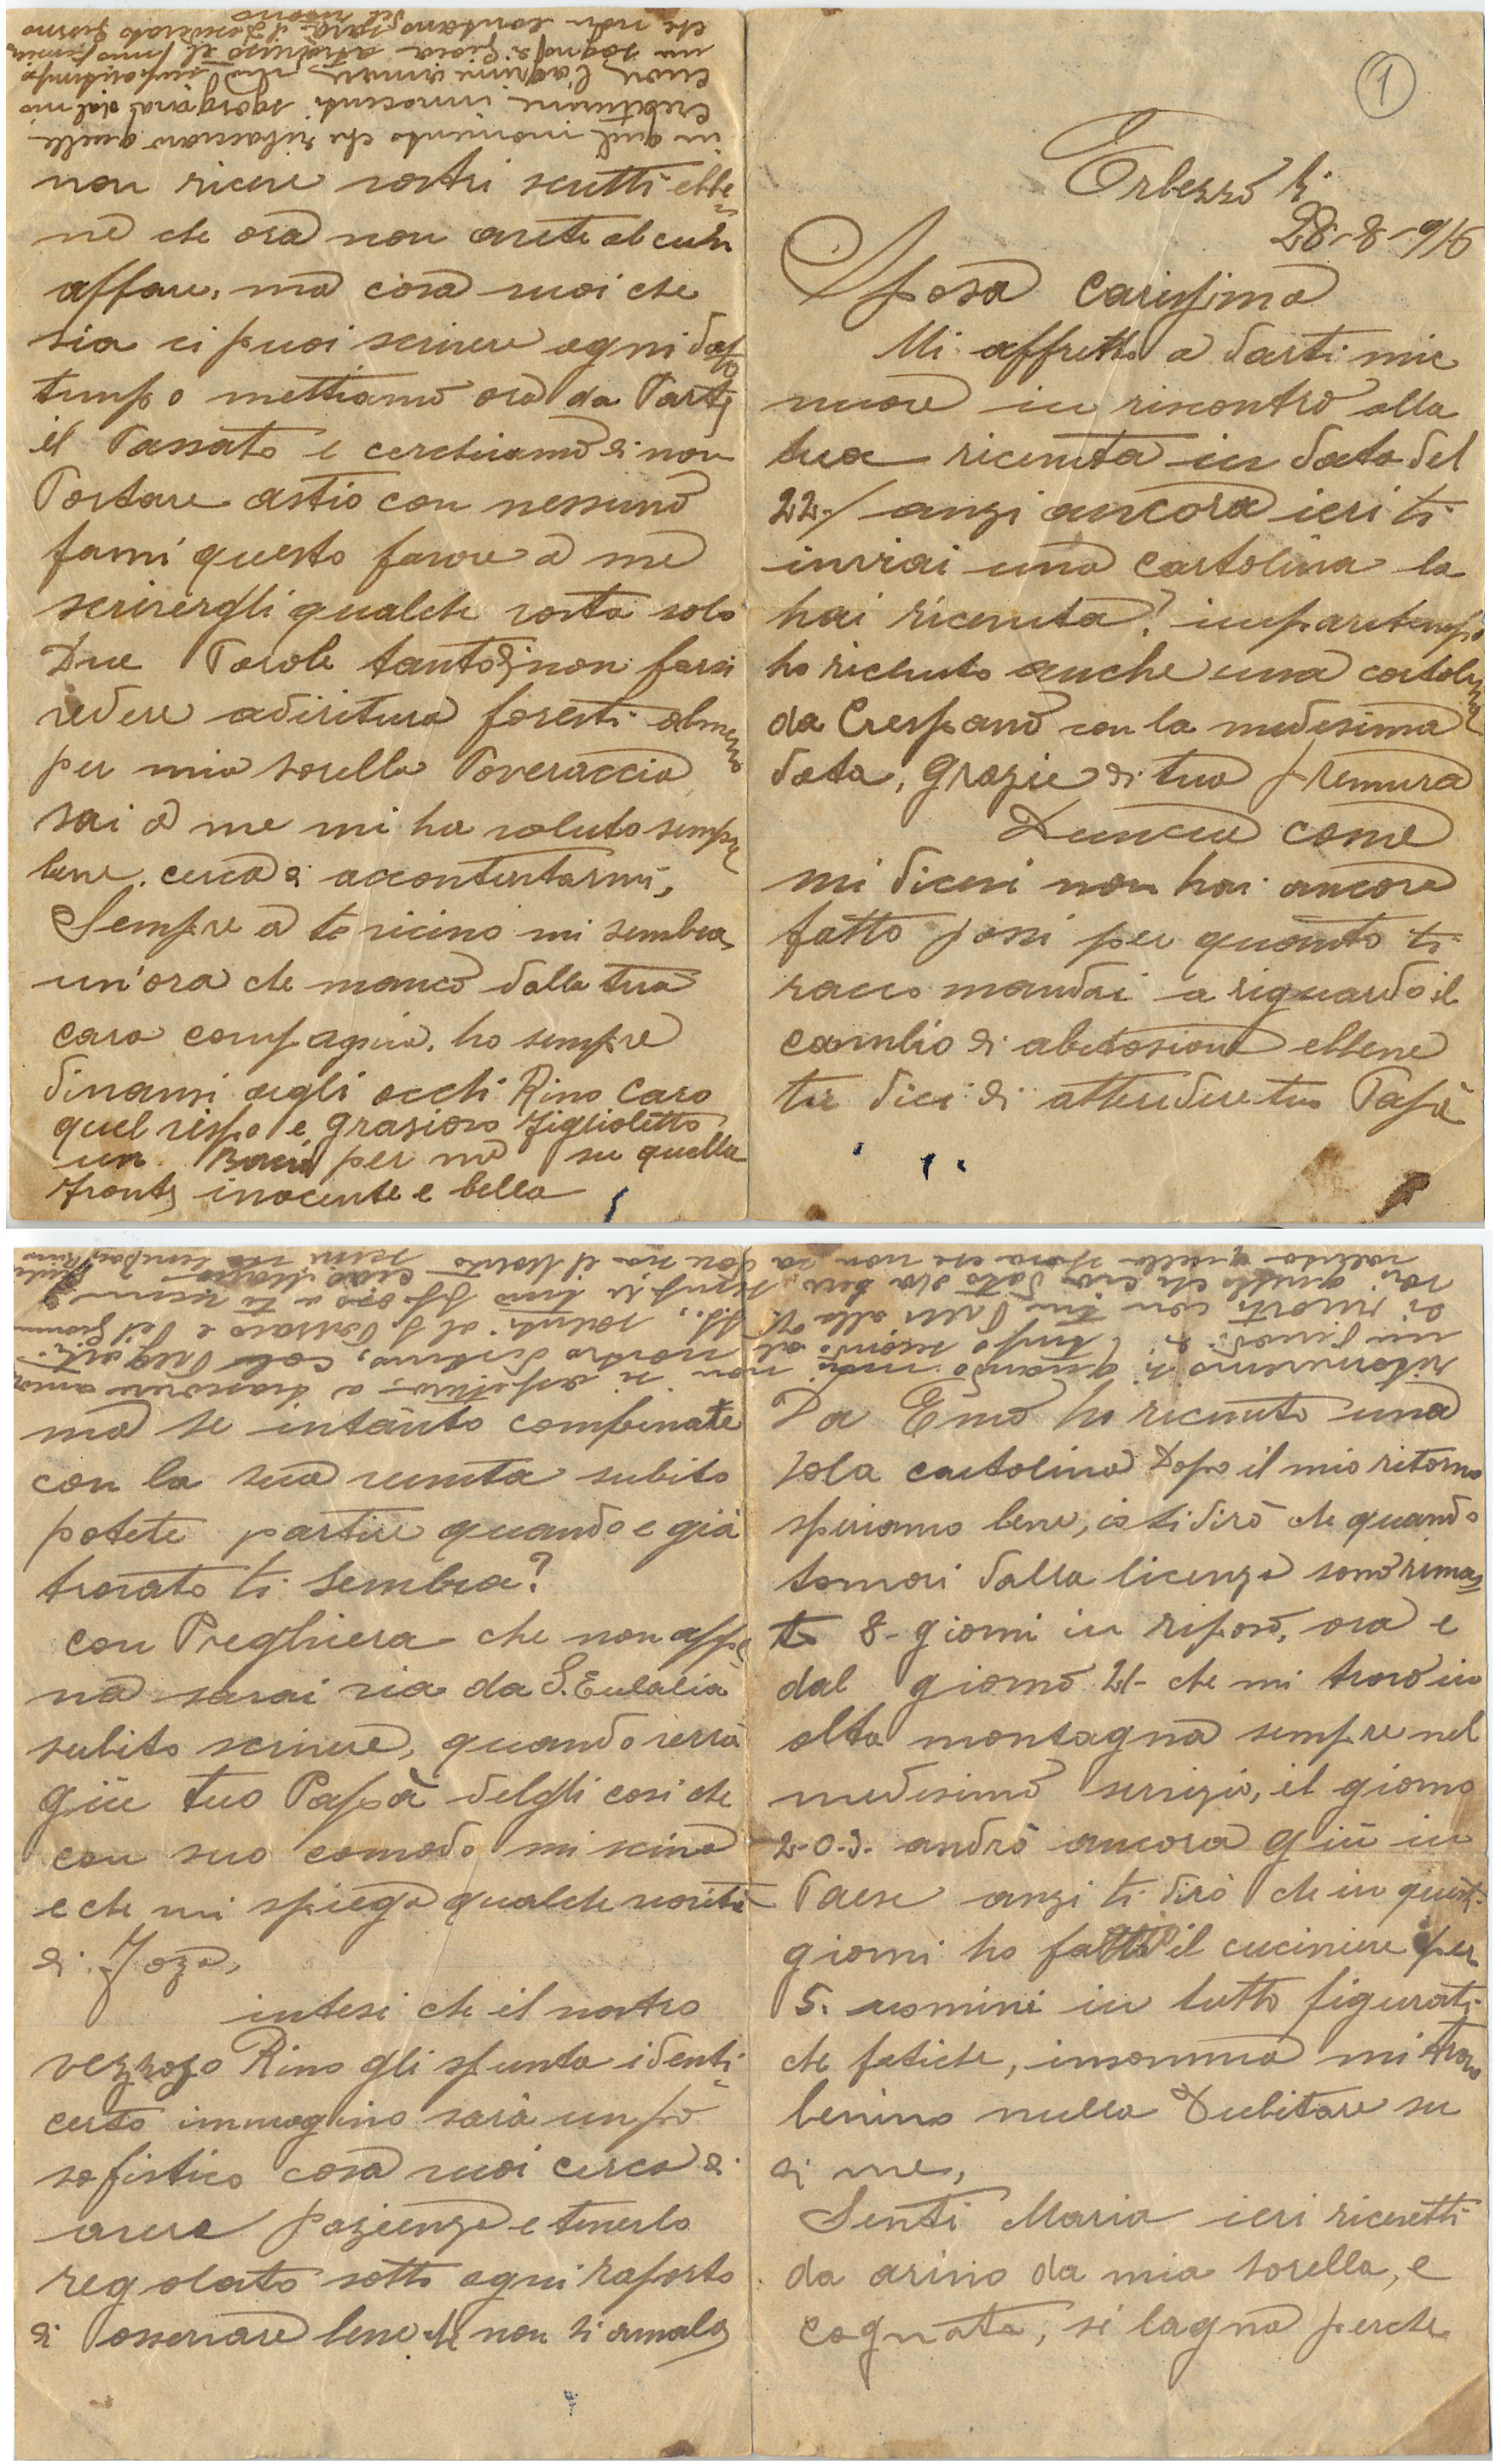 1
Erbezzo li
28-8-916
Sposa Carissima
Mi affretto a darti mie
nuove in riscontro alla
tua ricevuta in data del
22./ anzi ancora ieri ti
inviai una cartolina la
hai ricevuta? imparitempo
ho ricevuto anche una cartolina
da Crespano con la medesima
data, grazie di tua premura
Dunque come
mi dicevi non hai ancora
fatto passi per quanto ti
raccomandai a riguardo il
cambio di abitasione ebbene
tu dici di attendere tuo Papà
ma se intanto combinate
con la sua venuta subito
potete partire quando e già
trovato ti sembra?
con Preghiera che non appe
na sarai via da S. Eulalia
subito scrivere, quando verrà
giù tuo Papà delgli cosi che
con suo comodo mi scriva
e che mi spiega qualche novità
di Foza,
intesi che il nostro
vezzozo Rino gli spunta i denti
certo immagino sarà un pò
sofistico cosa vuoi cerca di
avere pazienza e tenerlo
regolato sotto ogni raporto
di osservare bene che non si amala
Da Emo ho ricevuto una
sola cartolina Dopo il mio ritorno
speriamo bene, io ti dirò che quando
tornai dalla licenza sono rimas
to 8- giorni in riposo, ora e
dal giorno 21- che mi trovo in
alta montagna sempre nel
medesimo servizio, il giorno
2.0.3. andrò ancora giù in
Paese anzi ti dirò che in questi
giorni ho fatto il cuciniere per
5. uomini in tutto figurati
che fatiche, insomma mi trovo
benino nulla Dubitare su
di me,
Senti Maria ieri ricevetti
da arino da mia sorella, e
cognata, si lagna perche
non riceve vostri scritti ebbe
ne che ora non avete alcun
affare, ma cosa vuoi che
sia ci puoi scrivere ogni dato
tempo mettiamo ora da Parte
il Passato e cerchiamo di non
Portare astio con nessuno
fami questo favore a me
scrivergli qualche volta solo
Due Parole tanto di non farsi
vedere adiritura foresti almeno
per mia sorella Poveraccia
sai a me mi ha voluto sempre
bene. cerca di accontentarmi,
Sempre a te vicino mi sembra
un'ora che manco dalla tua
cara compagnia. ho sempre
dinanzi agli occhi Rino Caro
quel vispo e grasioso figlioletto
un Bacio per me su quella
fronte inocente e bella
in quel momento che ribaciavo quelle
creatuine innocenti sgorgava dal mio
cuore lagrime amare, ma
un sogno di gioia
che non lontano sarà il desiderato giorno
del ritorno